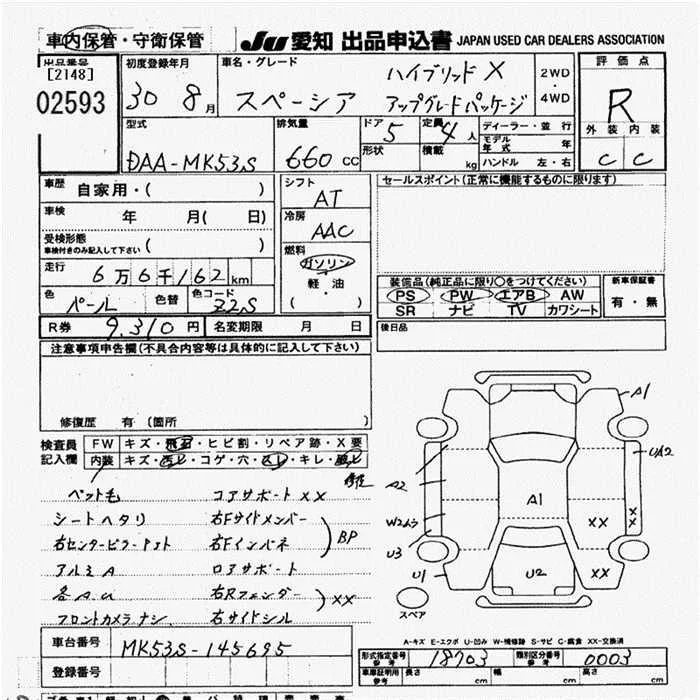 車内保管・守衛保管 JU 愛知 出品申込書 JAPAN USED CAR DEALERS ASSOCIATION
出品番号 初度登録年月 車名・グレード ハイブリッド X 2WD ・ 4WD 評価点
[2148]
02593 30 8月 スペーシア アップグレードパッケージ R
型式 排気量 ドア 5 定員 4人 ディーラー・並行 外装 内装
形状 積載 kg モデル年式 年
DAA-MK53S 660 CC ハンドル 左・右 C C
車歴 自家用・( ) シフト AT セールスポイント(正常に機能するものに限ります)
車検 年 月( 日) 冷房 AAC
受検形態 ( )
車検付きのみ記入して下さい
燃料 ガソリン 軽・油 ( ・ )
走行 6万6千162km
装備品(純正品に限り○をつけてください) 新車保証書
PS PW エアB AW 有・無
SR ナビ TV カワシート
色 パール 色替 色コード Z2S
後日品
R券 9,310円 名変期限 月 日
注意事項申告欄(不具合内容等は具体的に記入して下さい)
修復歴 有 (箇所 )
検査員記入欄 FW キズ・飛石・ヒビ割・リペア跡・X要
内装 キズ・汚レ・コゲ・穴・スレ・キレ・
ペット毛 コアサポート XX
シートヘタリ 右Fサイドメンバー
右センターピラー 右Fインパネ BP
アルミA ロアサポート
右Rフェンダー XX
フロントカメラナシ 右サイドシル
A1
UA2
A2
A1
W2ムラ XX XX
U3
U1 U2 XX
スペア
A-キズ E-エクボ U-凹み W-補修跡 S-サビ C-腐食 XX-交換済
車台番号 MK53S-145695
登録番号
形式指定番号 参考 18703 類別区分番号 参考 0003
車庫証明用 参考 長さ cm 幅 cm 高さ cm